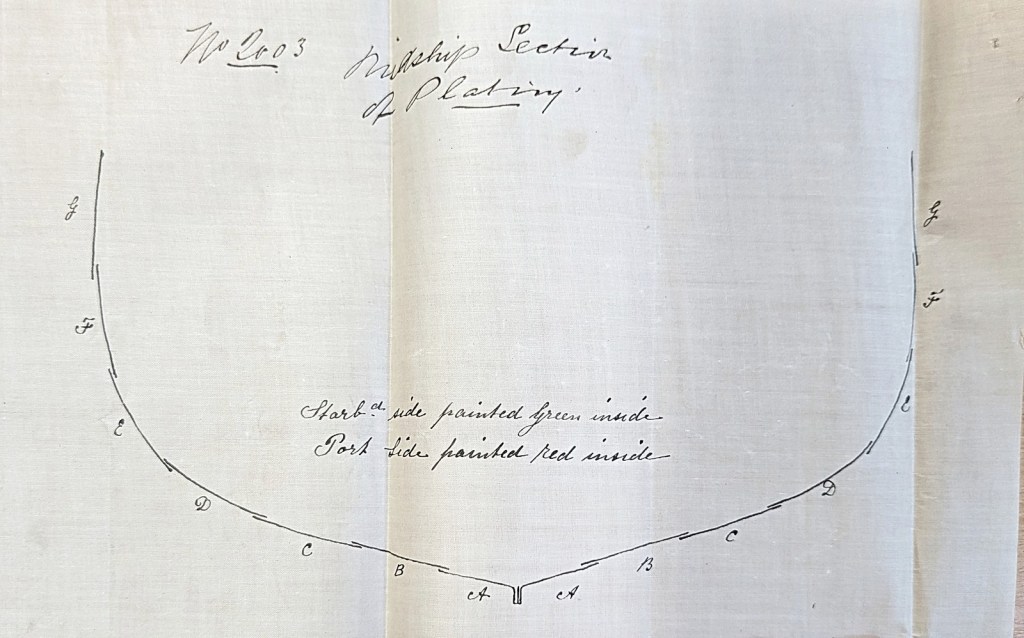 No 2003
Midship Section
of Plating.
G
G
F
F
Starbd side painted Green inside
E
E
Port Side painted red inside
D
D
C
C
B
B
A
A